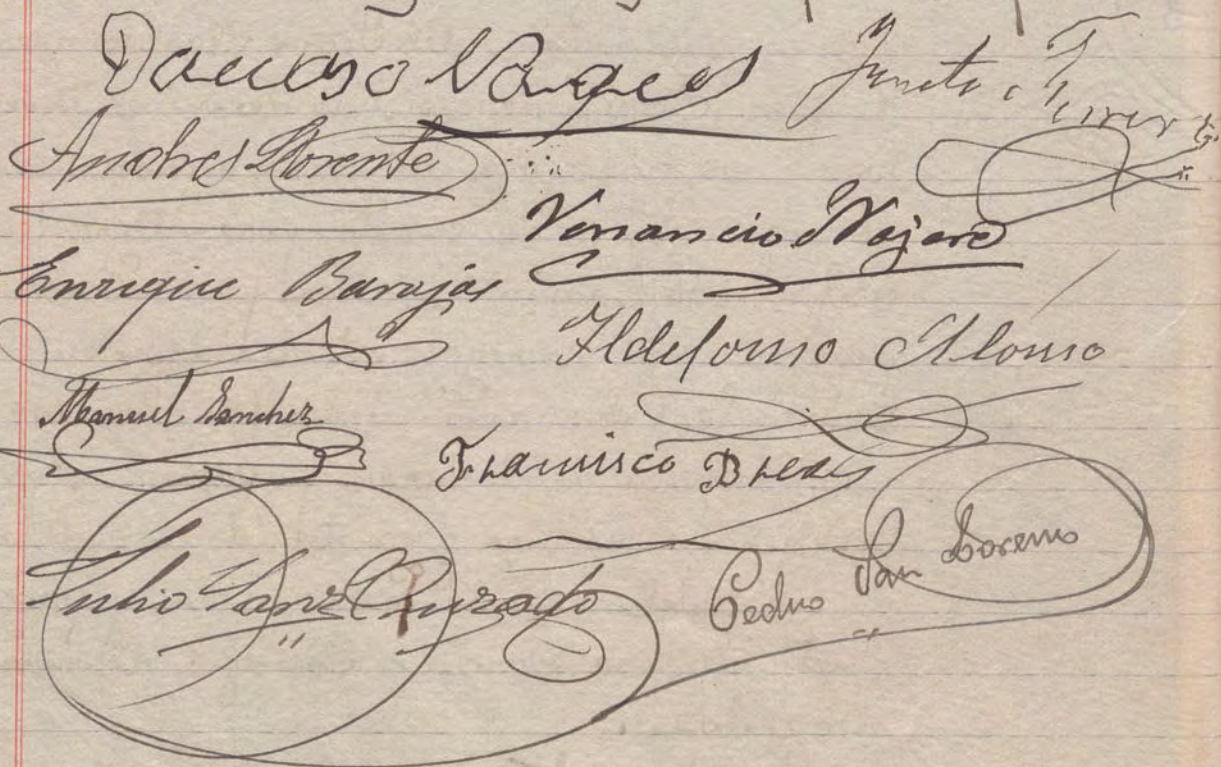 Damaso Vaques
Andres Llorente
Venancio Najare
Enrique Barajas
Ildefonso Alonso
Manuel Sanchez
Francisco Breas
Julio Sanz
Pedro San Lorenzo